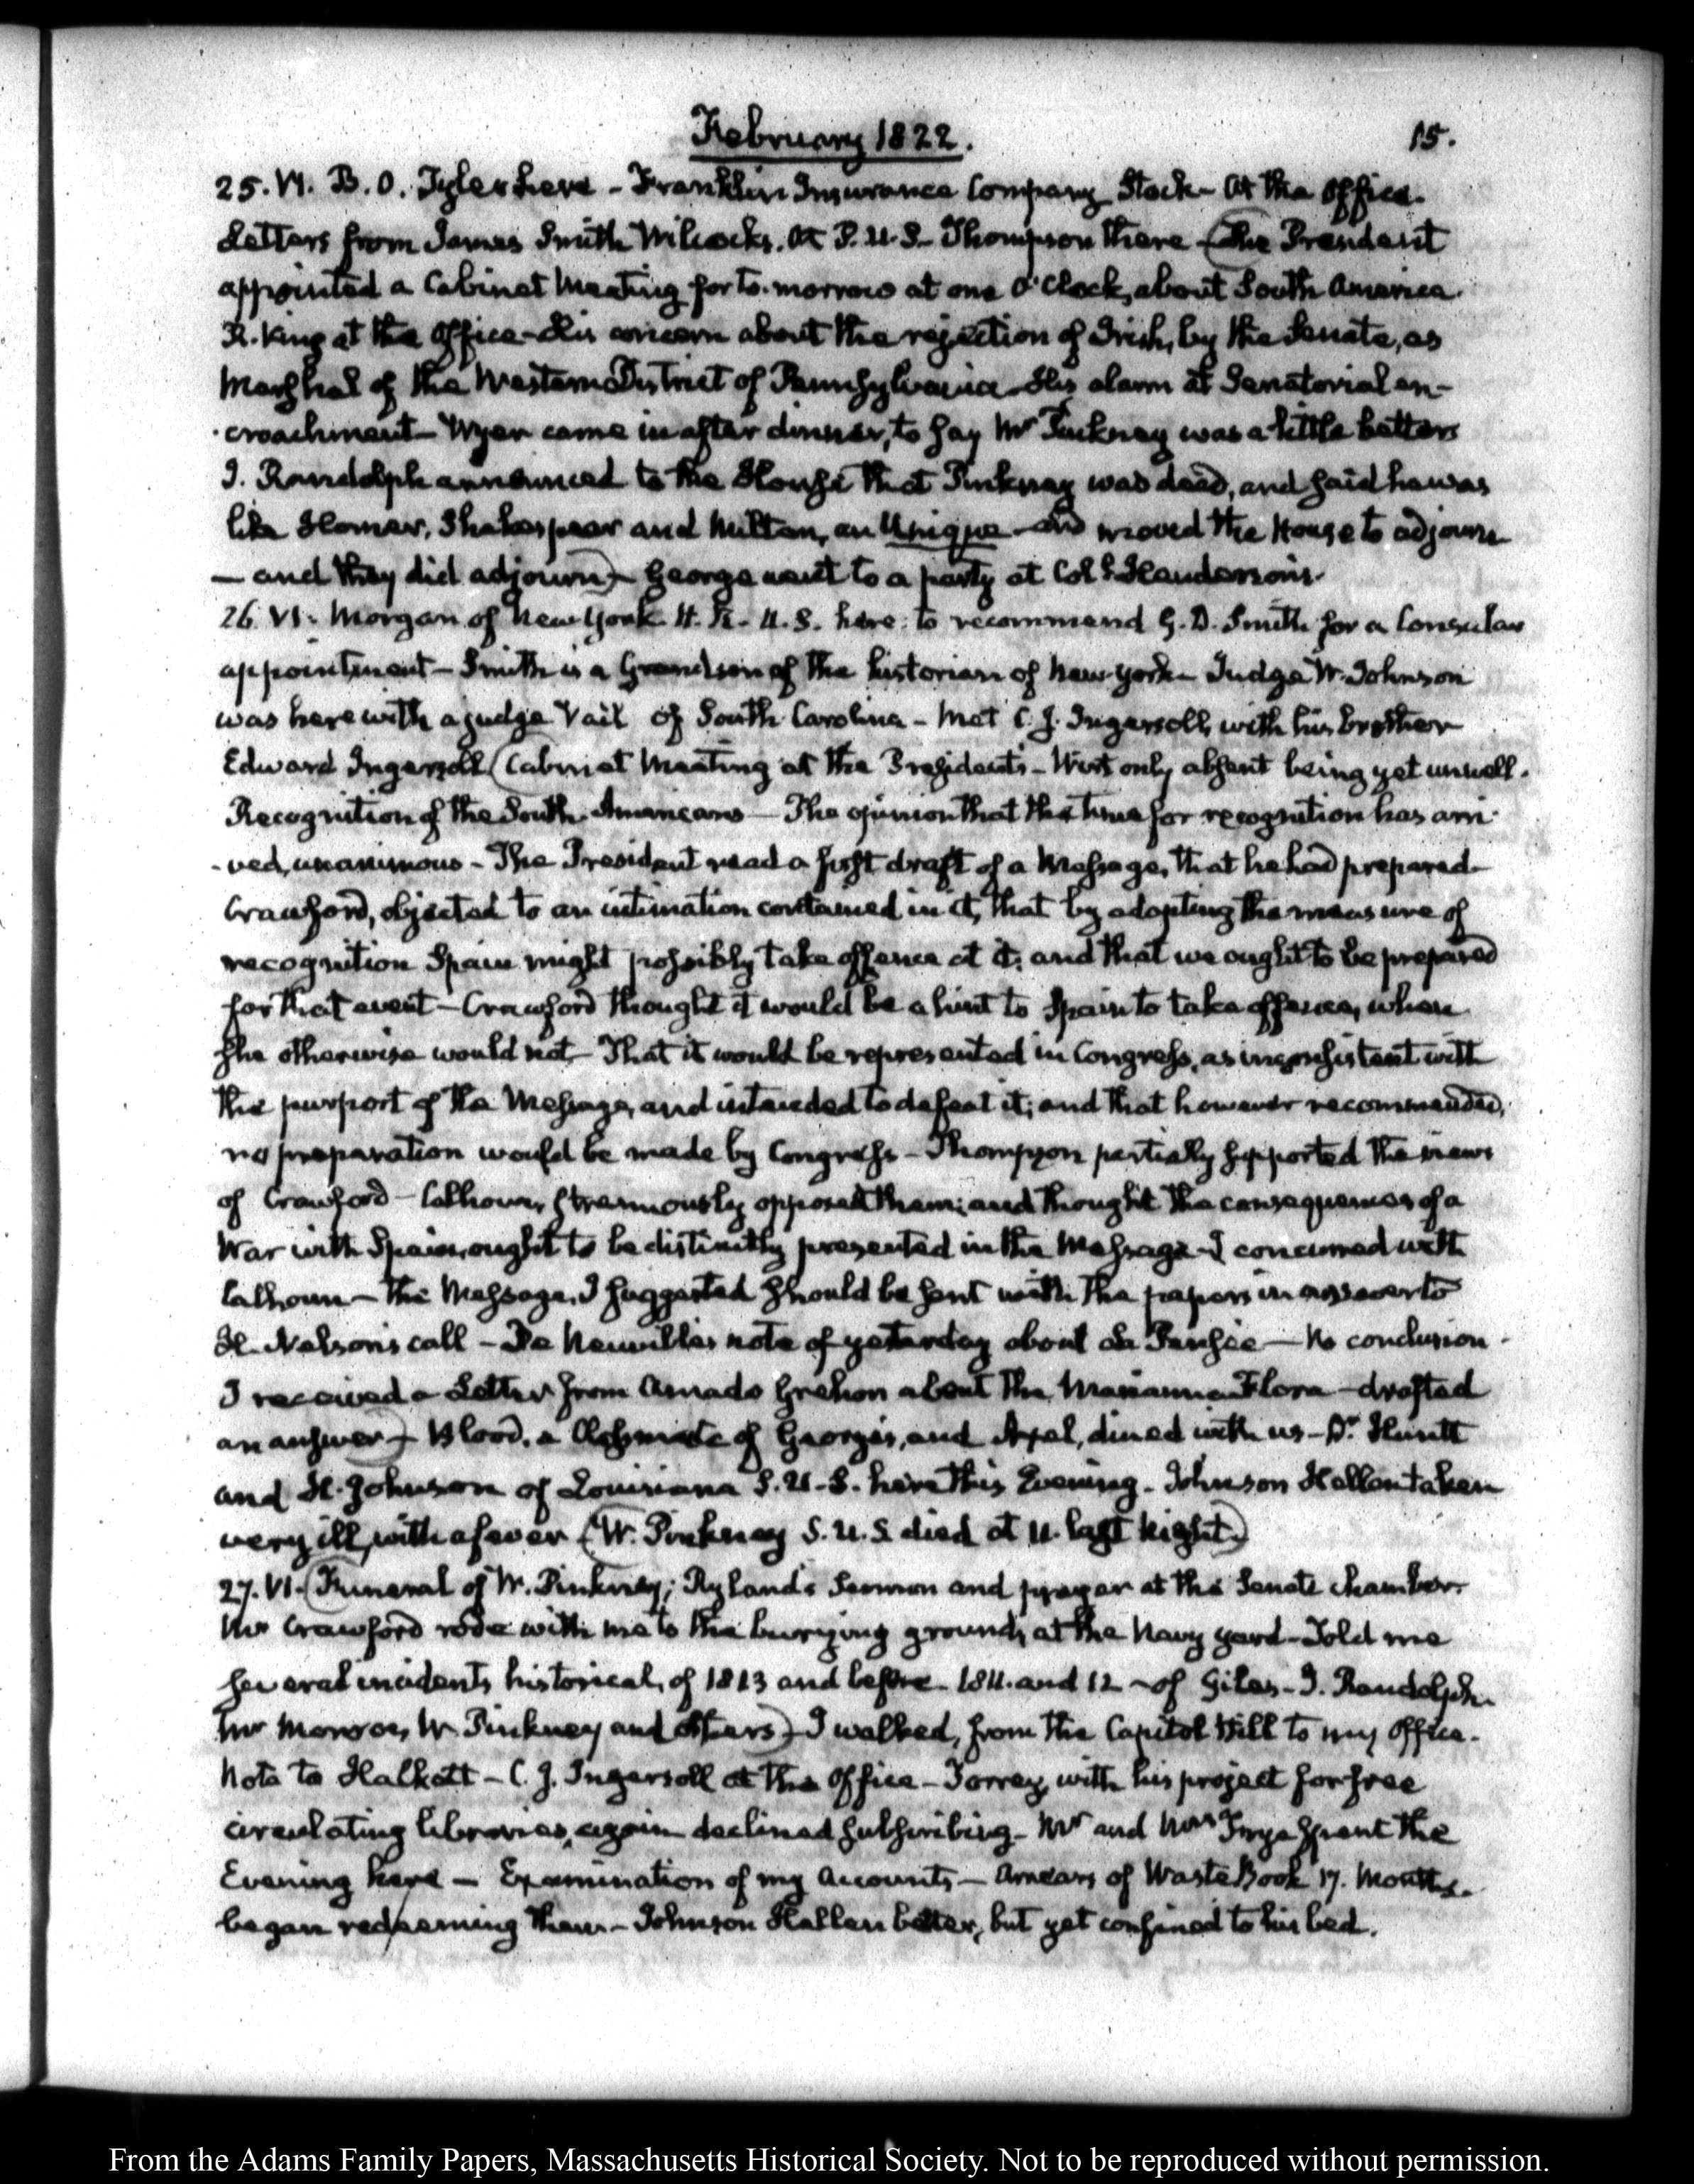 February 1822.
15.
25. VI. B. O. Tyler here - Franklin Insurance Company Stock - At the Office.
Letters from James Smith Wilcocks. At P. U. S. Thompson there - (The President
appointed a Cabinet Meeting for to-morrow at one O'Clock, about South America.
R. King at the Office - his concern about the rejection of Irish, by the Senate, as
Marshal of the Western District of Pennsylvania - His alarm at Senatorial en-
-croachment - Wyer came in after dinner, to say Mr Pinkney was a little better
J. Randolph announced to the House that Pinkney was dead, and said he was
like Homer, Shakespear and Milton, an Unique - and moved the House to adjourn
- and they did adjourn) - George went to a party at Coll Henderson's.
26. VI. Morgan of New York H. R. U. S. here: to recommend G. D. Smith for a Consular
appointment - Smith is a Grandson of the historian of New-York - Judge W. Johnson
was here with a judge Vail of South Carolina - Met C. J. Ingersoll, with his brother
Edward Ingersoll (Cabinet Meeting at the President's - Wirt only absent being yet unwell.
Recognition of the South-Americans - The opinion that the time for recognition has arri-
-ved, unanimous - The President read a first draft of a Message, that he had prepared -
Crawford, objected to an intimation contained in it, that by adopting the measure of
recognition Spain might possibly take offence at it; and that we ought to be prepared
for that event - Crawford thought it would be a hint to Spain to take offence, when
she otherwise would not - That it would be represented in Congress, as inconsistent with
the purport of the Message, and intended to defeat it; and that however recommended,
no preparation would be made by Congress - Thompson partially supported the views
of Crawford - Calhoun, strenuously opposed them; and thought the consequences of a
War with Spain, ought to be distinctly presented in the Message - I concurred with
Calhoun - The Message, I suggested should be sent with the papers in answer to
H. Nelson's call - De Neuville's note of yesterday about La Pensée - No conclusion -
I received a Letter from Amado Grehon about the Marianna Flora - drafted
an answer) - Blood, a Classmate of George's, and Apel, dined with us - Dr. Huntt
and H. Johnson of Louisiana S. U. S. here this Evening - Johnson Hellen taken
very ill, with a fever (W. Pinkney S. U. S. died at 11. last Night.)
27. VI. (Funeral of W. Pinkney; Ryland's Sermon and prayer at the Senate chamber.
Mr Crawford rode with me to the burying ground, at the Navy yard - Told me
several incidents historical, of 1813 and before - 1811. and 12 - of Giles - J. Randolph
Mr Monroe, W. Pinkney and others) - I walked, from the Capitol Hill to my Office -
Note to Halkett - C. J. Ingersoll at the Office - Torrey, with his project for free
circulating libraries, again declined subscribing - Mr and Mrs Frye spent the
Evening here - Examination of my Accounts - Arrears of Waste Book 17. Months.
began redeeming them - Johnson Hellen better, but yet confined to his bed.
From the Adams Family Papers, Massachusetts Historical Society. Not to be reproduced without permission.